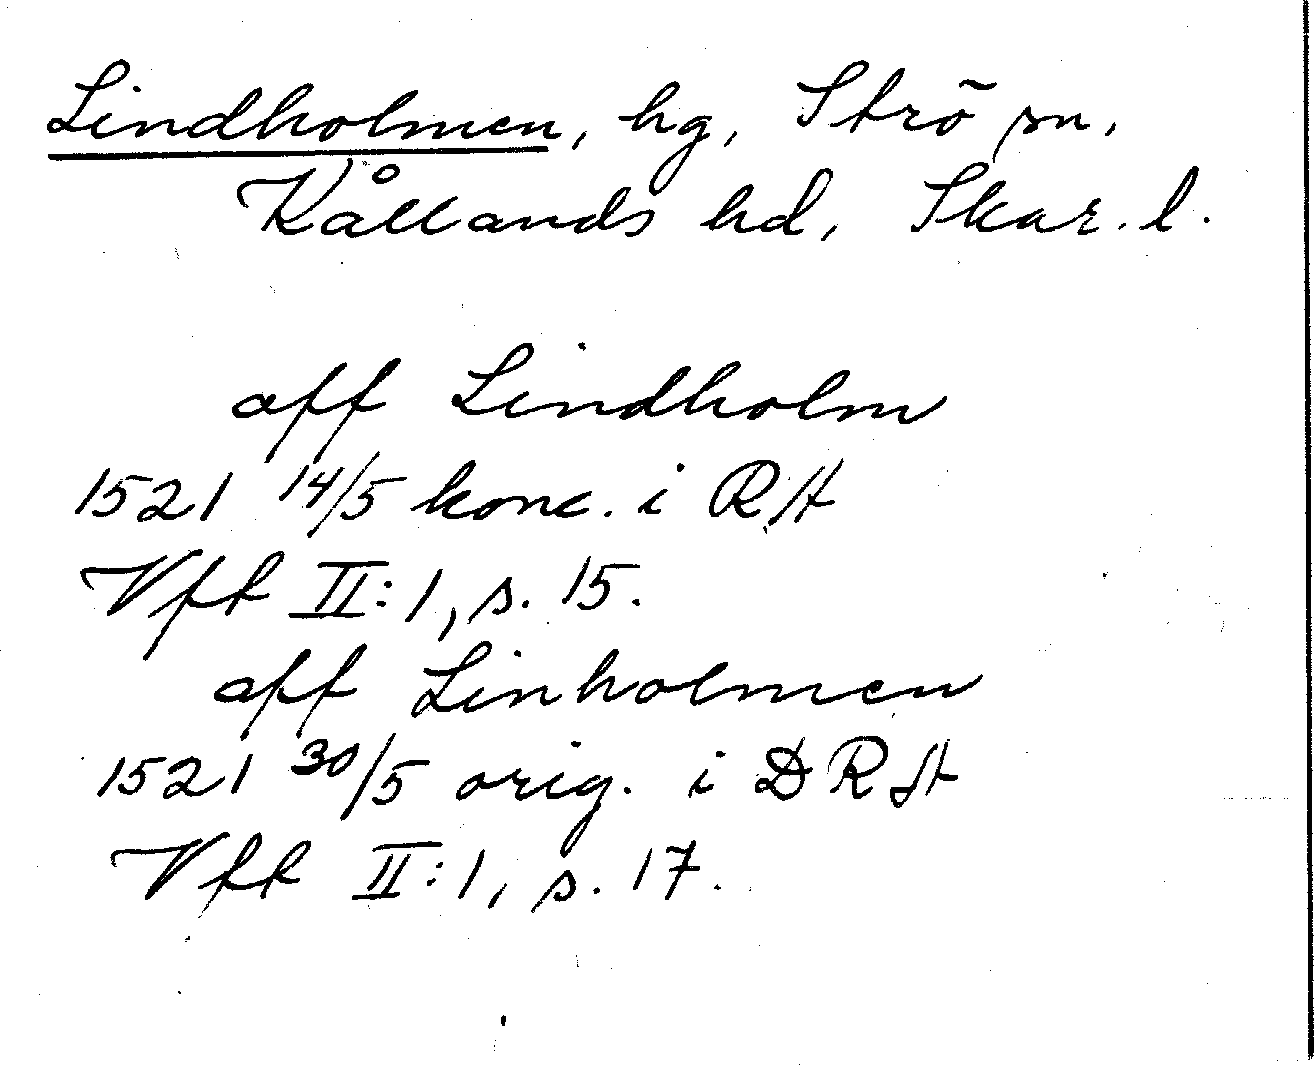 Lindholmen, hg, Strö sn,
Kållands hd, Skar. l.
aff Lindholm
1521 14/5 konc. i RA
Vfk II:1, s. 15.
aff Linholmen
1521 30/5 orig. i DRA
Vfk II:1, s. 17.